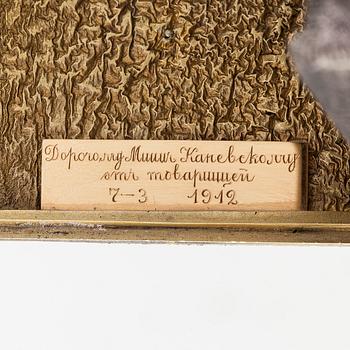 Дорогому Мишѣ Каневскому
отъ товарищей
7–3 1912